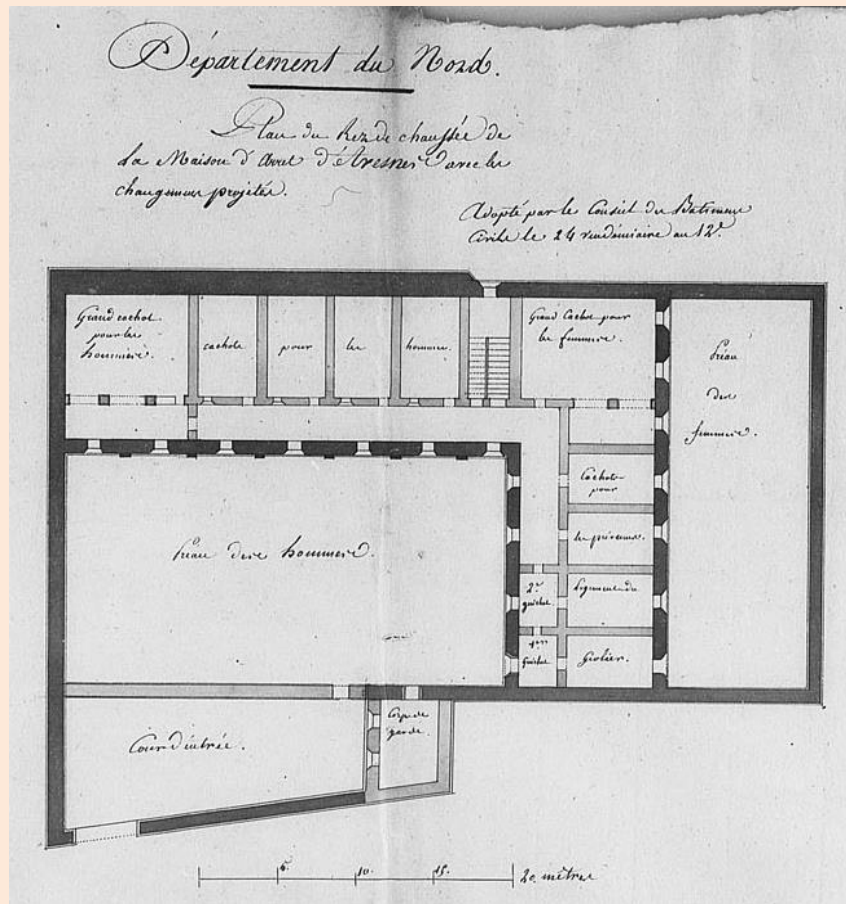 Département du Nord.
Plan du Rez de chaussée de
la Maison d'arret d'Avesnes avec les
changemens projetés.
Adopté par le Conseil des Batimens
Civils le 24 vendémiaire an 12e.
Grand cachot
pour les
hommes.
cachots
pour
les
hommes.
Grand Cachot pour
les femmes.
Préau
des
femmes.
Cachots
pour
les
Préau des hommes.
2e
guichet
Logement du
1er
Guichet
Geolier.
Cour d'entrée.
Corps de
garde.
5.
10.
15.
20 mètres